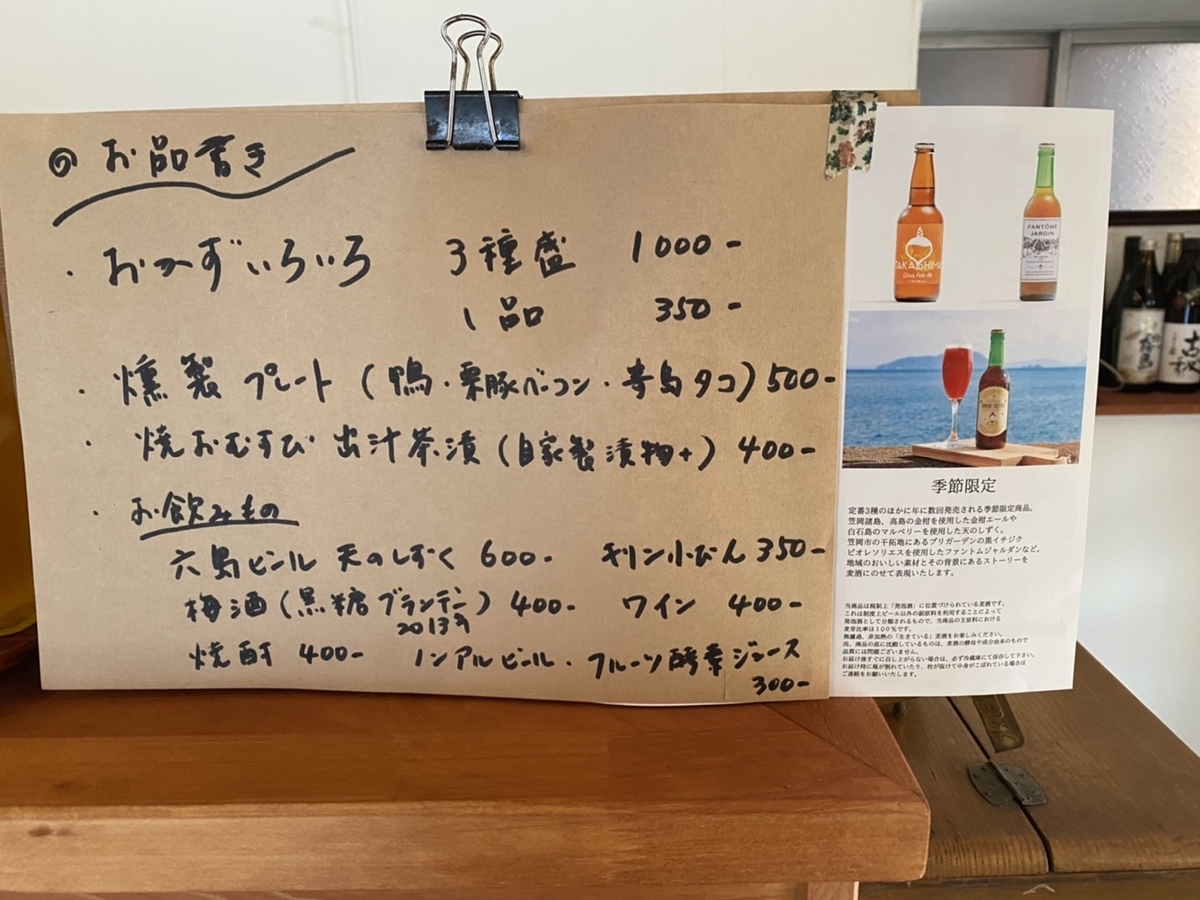 ◎ お品書き
・おかずいろいろ 3種盛 1000-
1品 350-
・燻製プレート(鴨・栗豚ベーコン・寄島タコ)500-
・焼おむすび 出汁茶漬(自家製漬物+) 400-
・お飲みもの
六島ビール 天のしずく 600- キリン小びん 350-
梅酒(黒糖ブランデー) 400- ワイン 400-
焼酎 400- ノンアルビール・フルーツ酵素ジュース
300-
TAKASHIMA
Citrus Pale Ale
FANTÔME
JARDIN
季節限定
定番3種のほかに年に数回発売される季節限定商品。
笠岡諸島、高島の金柑を使用した金柑エールや
白石島のマルベリーを使用した天のしずく。
笠岡市の干拓地にあるブリガーデンの黒イチジク
ビオレソリエスを使用したファントムジャルダンなど。
地域のおいしい素材とその背景にあるストーリーを
麦酒にのせて表現いたします。
当商品は税制上「発泡酒」に位置づけられている麦酒です。
これは制度上ビール以外の副原料を利用することによって
発泡酒として分類されるもので、当商品の主原料における
麦芽比率は100%です。
無濾過、非加熱の「生きている」麦酒をお楽しみください。
尚、商品の底に沈殿しているものは、麦酒の酵母や成分由来のもので
品質には問題ございません。
お届け後すぐに召し上がらない場合は、必ず冷蔵庫にて保存して下さい。
お届け時に瓶が割れていたり、栓が抜けて中身がこぼれている場合は
ご連絡をお願いいたします。
霧島